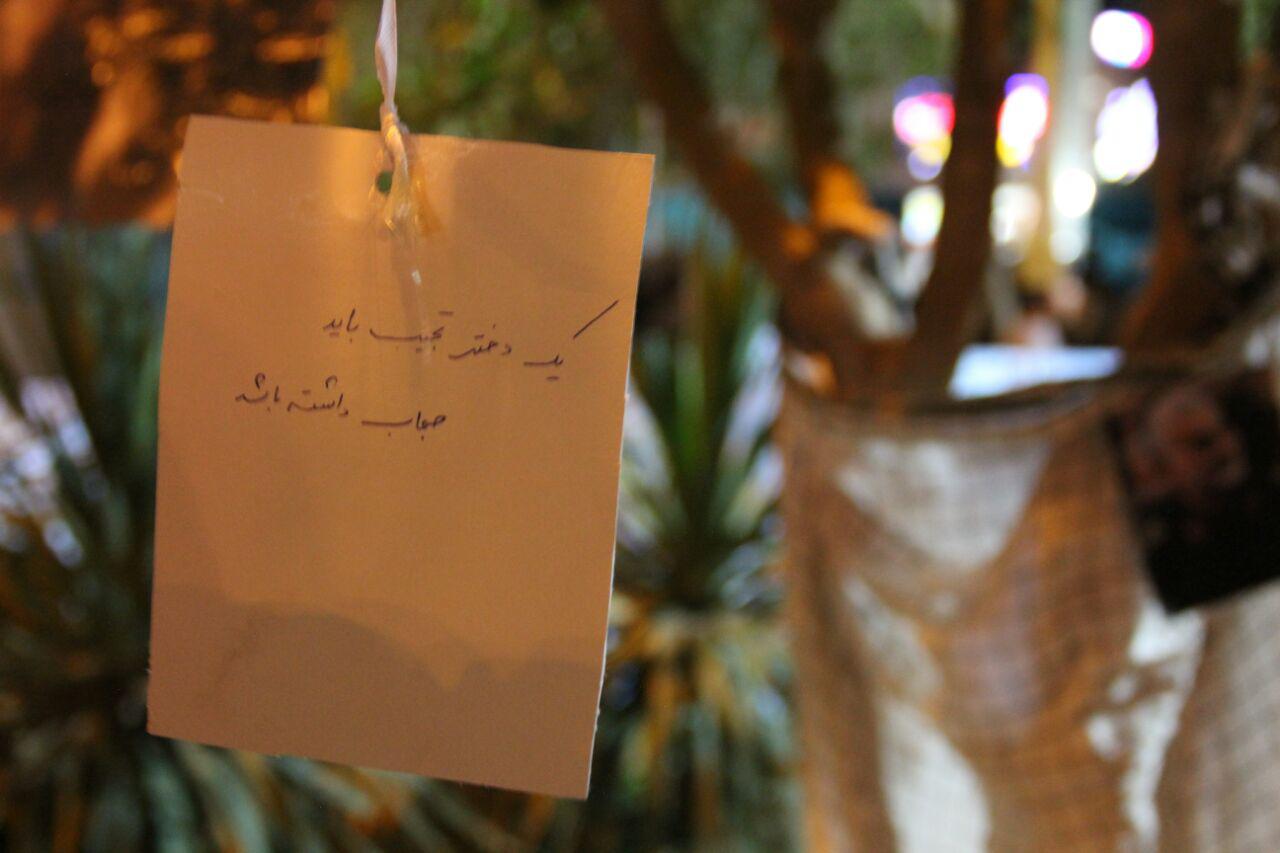 یک دختر نجیب باید
حجاب داشته باشد